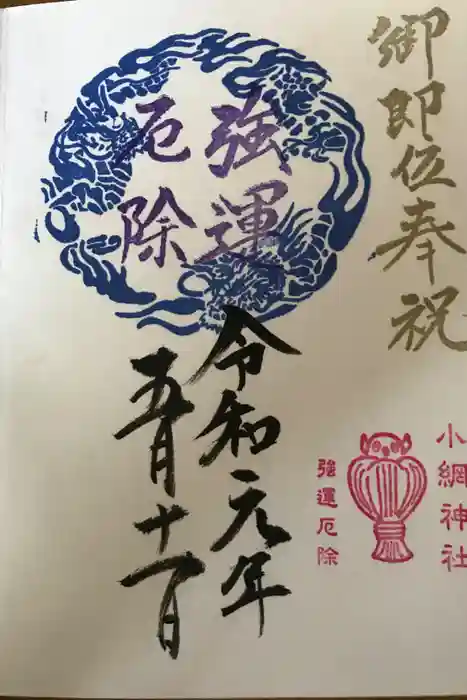 御即位奉祝
小網神社
強運厄除
強運
厄除
令和元年
五月十一日